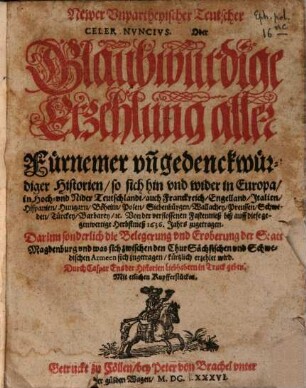 Newer Vnpartheyischer Teutscher
CELER. NVNCIVS. Oder
Glaubwürdige
Erzehlung aller
Fürnemer vñ gedenckwür-
diger Historien / so sich hin vnd wider in Europa /
in Hoch-vnd Nider Teutschlandt / auch Franckreich / Engellandt / Italien,
Hispanien / Hungarn / Böhem / Polen / Siebenbürgen / Wallachey / Preussen / Schwe-
den / Türckey / Barbarey / ꝛc. Von der verflossenen Fastenmeß biß auff diese ge-
genwertige Herbstmeß 1636. Jahrs zugetragen.
Darinn sonderlich die Belegerung vnd Eroberung der Statt
Magdenburg vnd was sich zwischen den Chur Sächsischen vnd Schwe-
dischen Armeen sich zugetragen / kürtzlich erzehlet wird.
Durch Caspar Ens der Historien liebhabern in Truck geben.
Mit etlichen Kupfferstücken.
Getruckt zu Cöllen / bey Peter von Brachel vnter
der gülden Wagen / M. DC. XXXVI.
Eph. pol.
16